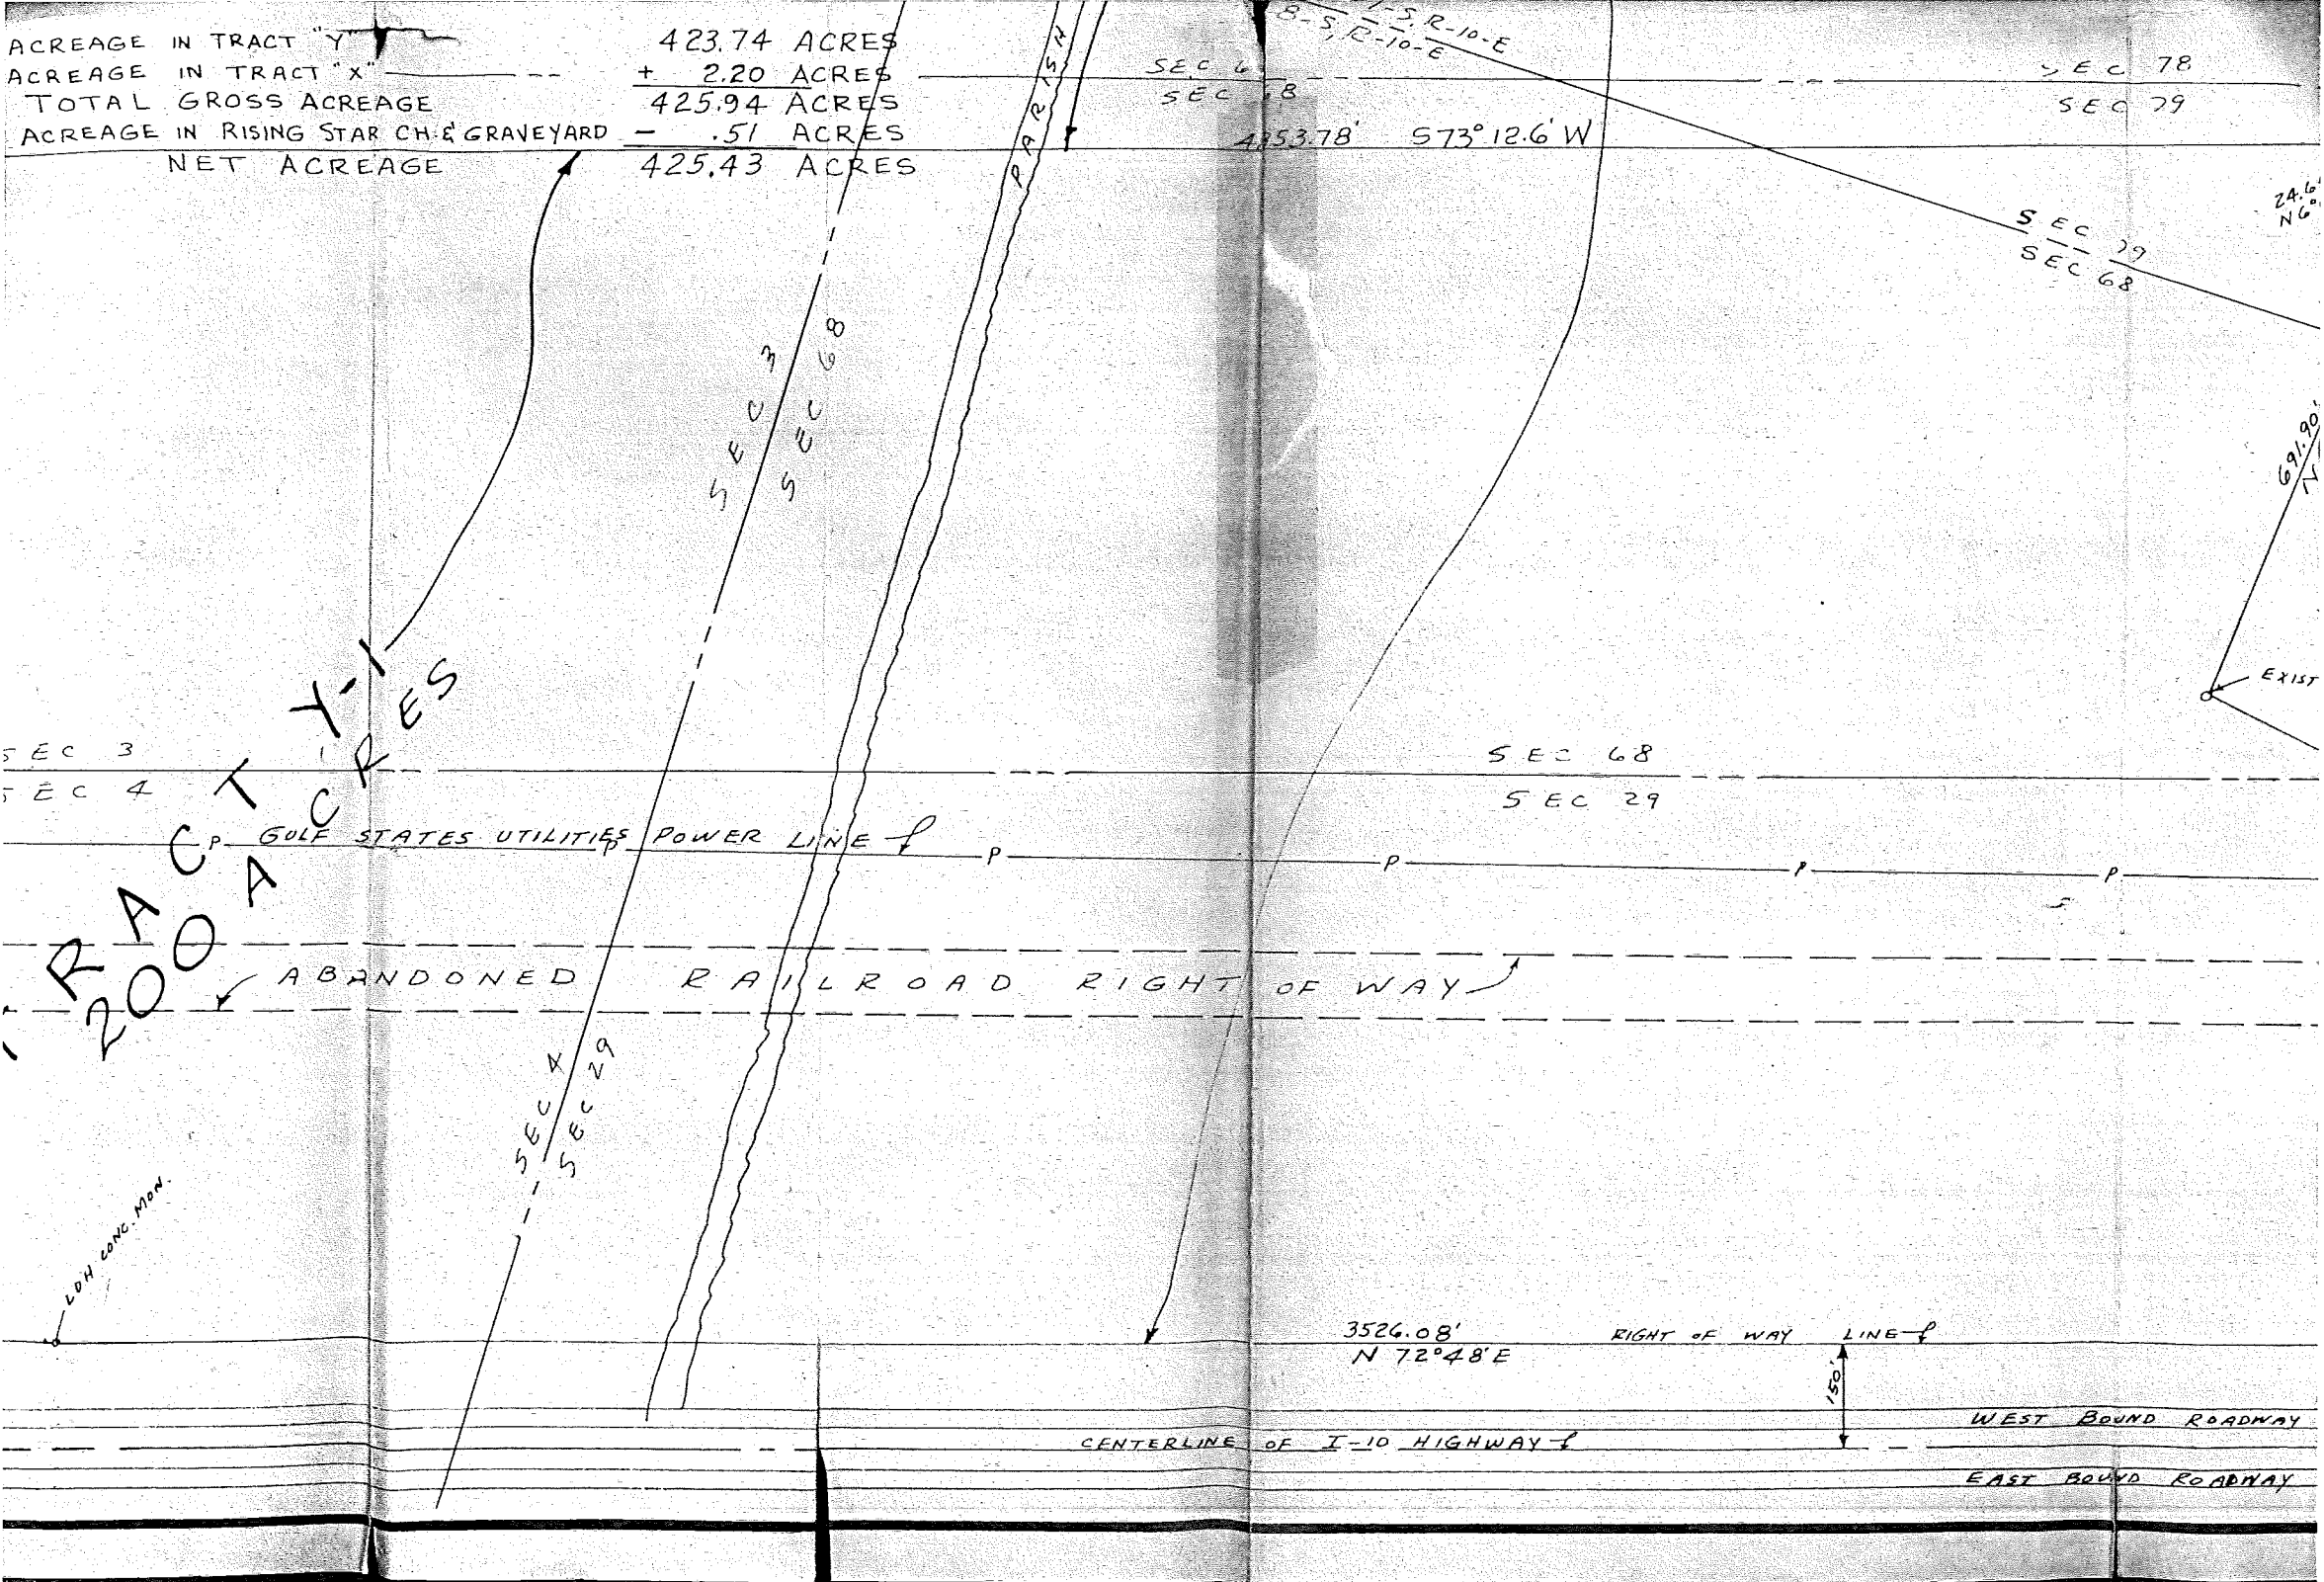 ACREAGE IN TRACT "Y" 423.74 ACRES
ACREAGE IN TRACT "X" + 2.20 ACRES
TOTAL GROSS ACREAGE 425.94 ACRES
ACREAGE IN RISING STAR CH. & GRAVEYARD - .51 ACRES
NET ACREAGE 425.43 ACRES
PARISH
S, R-10-E
8-S, R-10-E
SEC
SEC
SEC 78
SEC 79
S73°12.6'W
24.6'
N6°
SEC 79
SEC 68
SEC 3
SEC 68
691.90'
N
EXIST
TRACT Y-1
200 ACRES
SEC 3
SEC 4
SEC 68
SEC 29
P GULF STATES UTILITIES P POWER LINE P P P P
ABANDONED RAILROAD RIGHT OF WAY
SEC 4
SEC 29
LDH CONC. MON.
3526.08'
N 72°48'E
RIGHT OF WAY LINE
150'
WEST BOUND ROADWAY
CENTERLINE OF I-10 HIGHWAY
EAST BOUND ROADWAY